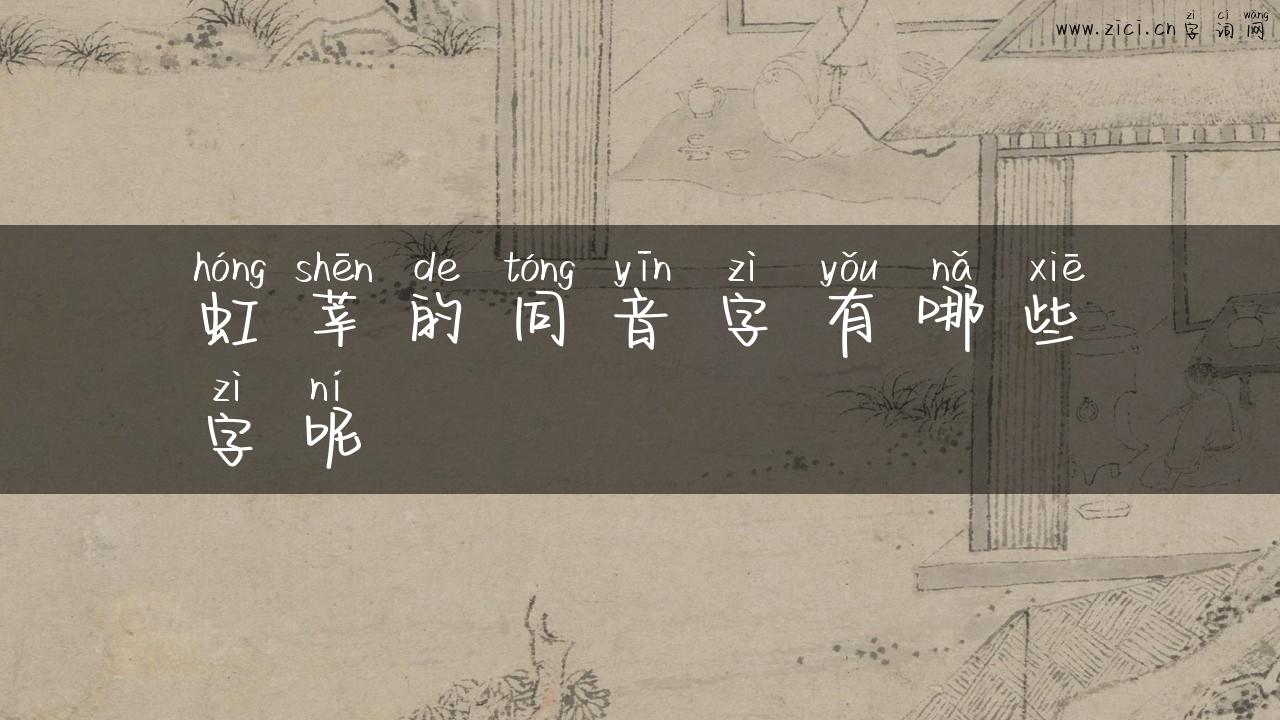 zì cí wǎng
www.zici.cn 字词网
hóng shēn de tóng yīn zì yǒu nǎ xiē
虹莘的同音字有哪些
zì ní
字呢